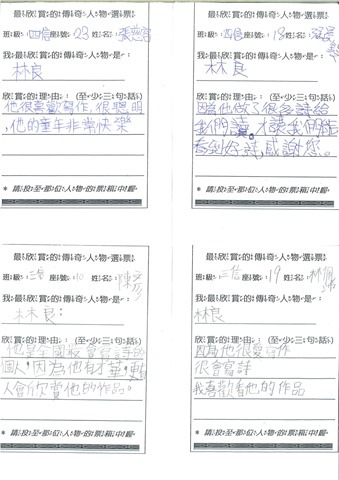 最欣賞的傳奇人物選票
班級:四信 座號:23 姓名:
我最欣賞的傳奇人物是:
林良
欣賞的理由:(至少三句話)
他很喜歡寫作,很聰明
,他的童年非常快樂
* 請投至那位人物的票箱中喔
最欣賞的傳奇人物選票
班級:四信 座號:18 姓名:
我最欣賞的傳奇人物是:
林良
欣賞的理由:(至少三句話)
因為他做了很多詩給
我們讀。才讓我們能
看到好詩,感謝您。
* 請投至那位人物的票箱中喔
最欣賞的傳奇人物選票
班級:三信 座號:10 姓名:陳
我最欣賞的傳奇人物是:
林良:
欣賞的理由:(至少三句話)
他是全國最會寫詩的
個人,因為他有才華,
人會欣賞他的作品。
* 請投至那位人物的票箱中喔
最欣賞的傳奇人物選票
班級:三信 座號:19 姓名:林
我最欣賞的傳奇人物是:
林良
欣賞的理由:(至少三句話)
因為他很愛寫作
很會寫詩
我喜歡看他的作品
* 請投至那位人物的票箱中喔